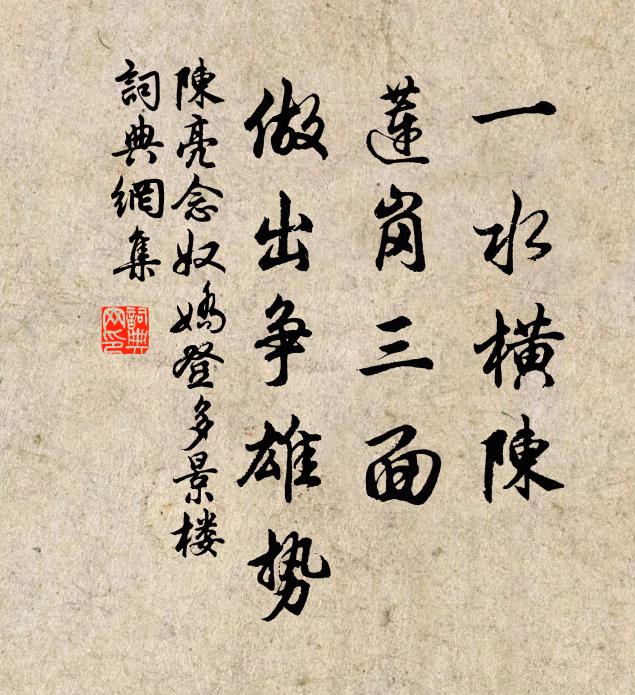 一水橫陳
蓮岗三面
做出争雄势
陳亮念奴嬌登多景楼
詞典網集
詞典
网印